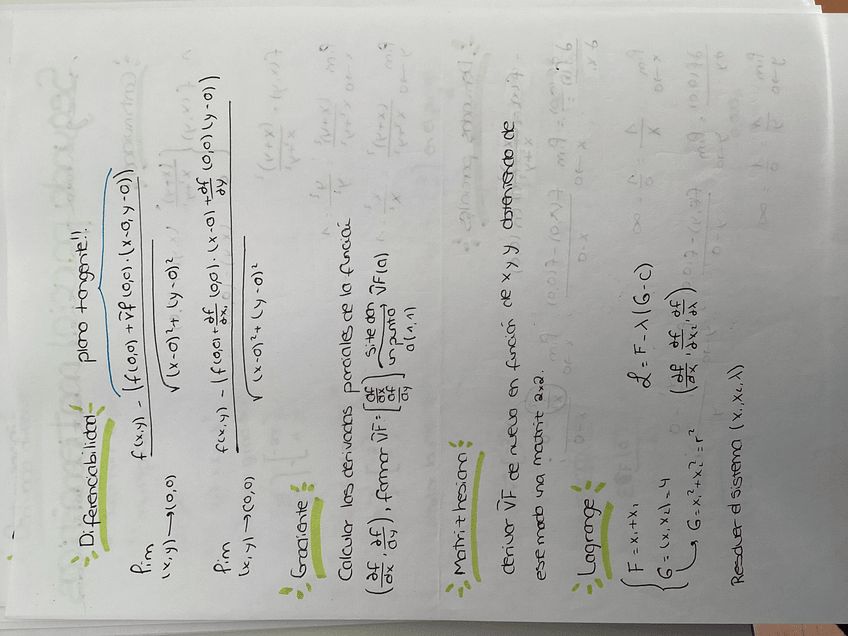 Diferenciabilidad plano tangente!!
lim (x,y)→(0,0) f(x,y) - (f(0,0) + ∇f(0,0)·(x-0,y-0)) / √(x-0)²+(y-0)²
lim (x,y)→(0,0) f(x,y) - (f(0,0)+ df/dx (0,0)·(x-0)+ df/dy (0,0)(y-0)) / √(x-0)²+(y-0)²
Gradiente
Calcular las derivadas parciales de la función
(df/dx, df/dy), formar ∇F = [df/dx df/dy] si te dan un punto a(1,1) → ∇F(a)
Matriz hesiana
derivar ∇F de nuevo en función de x y y obteniendo de
ese modo una matriz 2x2.
Lagrange
{ F = x₁+x₁ ℒ = F - λ(G-C)
G = (x₁,x₂) = 4 (df/dx₁, df/dx₂, df/dλ)
→ G = x₁²+x₂² = r²
Resolver el sistema (x₁,x₂,λ)